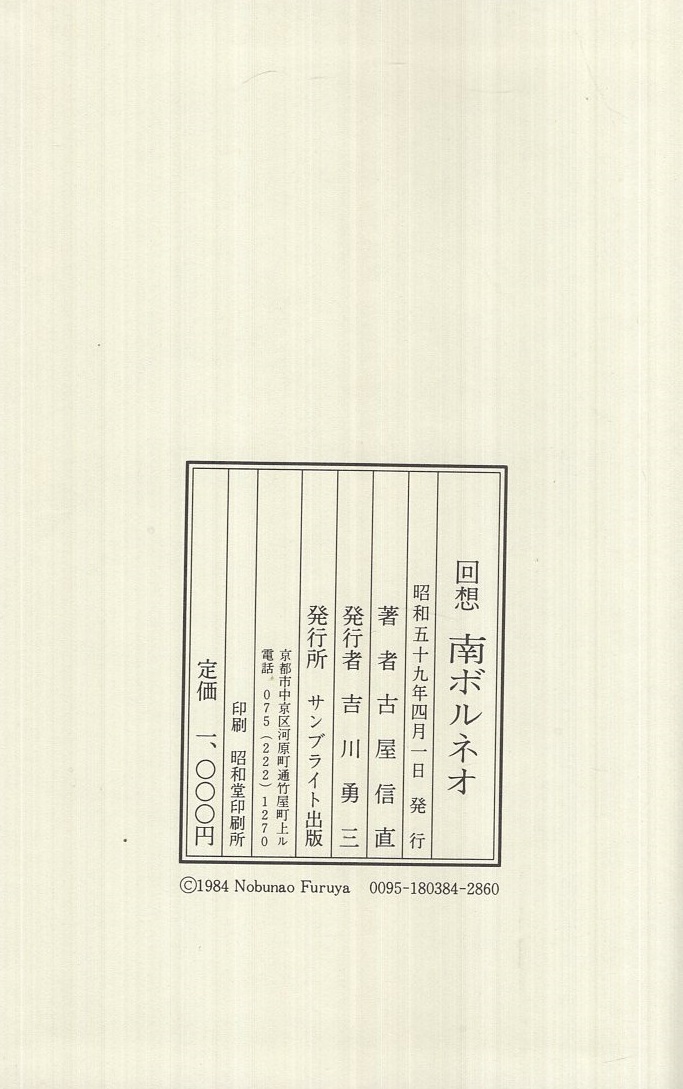 回想 南ボルネオ
昭和五十九年四月一日 発行
著者 古屋信直
発行者 吉川勇三
発行所 サンブライト出版
京都市中京区河原町通竹屋町上ル
電話 075(222)1270
印刷 昭和堂印刷所
定価 一、〇〇〇円
©1984 Nobunao Furuya 0095-180384-2860